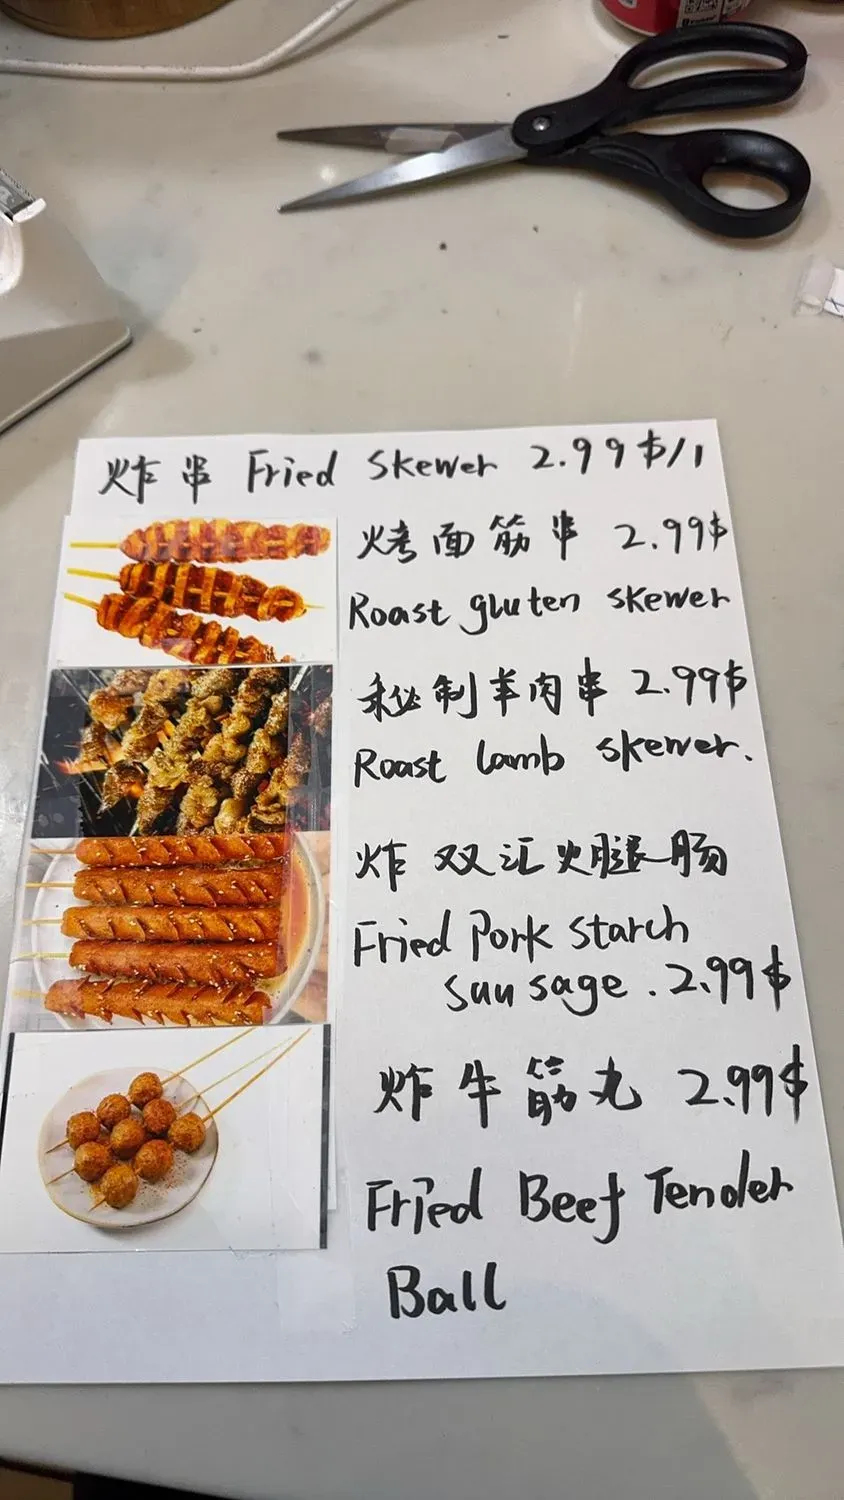 炸串 Fried Skewer 2.99$/1
烤面筋串 2.99$
Roast gluten skewer
秘制羊肉串 2.99$
Roast lamb skewer.
炸双汇火腿肠
Fried Pork starch
suusage . 2.99$
炸牛筋丸 2.99$
Fried Beef Tender
Ball